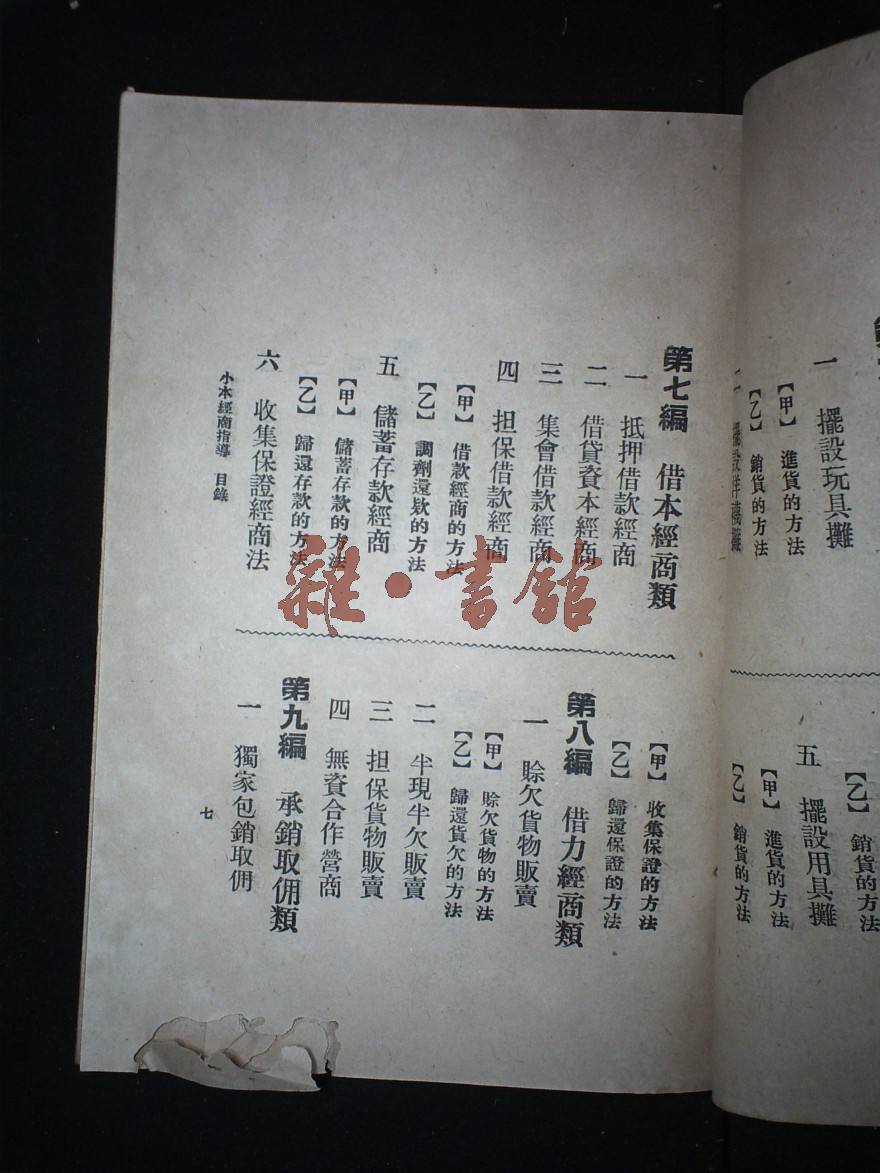 一 擺設玩具攤
【甲】進貨的方法
【乙】銷貨的方法
【乙】銷貨的方法
五 擺設用具攤
【甲】進貨的方法
【乙】銷貨的方法
第七編 借本經商類
一 抵押借款經商
二 借貸資本經商
三 集會借款經商
四 担保借款經商
【甲】借款經商的方法
【乙】調劑還欵的方法
五 儲蓄存款經商
【甲】儲蓄存款的方法
【乙】歸還存款的方法
六 收集保證經商法
【甲】收集保證的方法
【乙】歸還保證的方法
第八編 借力經商類
一 賒欠貨物販賣
【甲】賒欠貨物的方法
【乙】歸還貨欠的方法
二 半現半欠販賣
三 担保貨物販賣
四 無資合作營商
第九編 承銷取佣類
一 獨家包銷取佣
小本經商指導 目錄
七
雜·書館